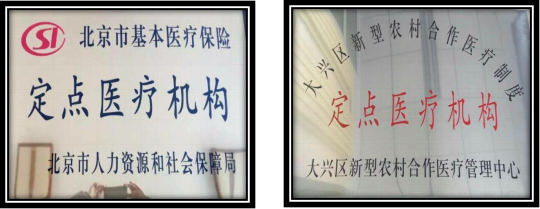 SI 北京市基本医疗保险
定点医疗机构
北京市人力资源和社会保障局
大兴区新型农村合作医疗制度
定点医疗机构
大兴区新型农村合作医疗管理中心